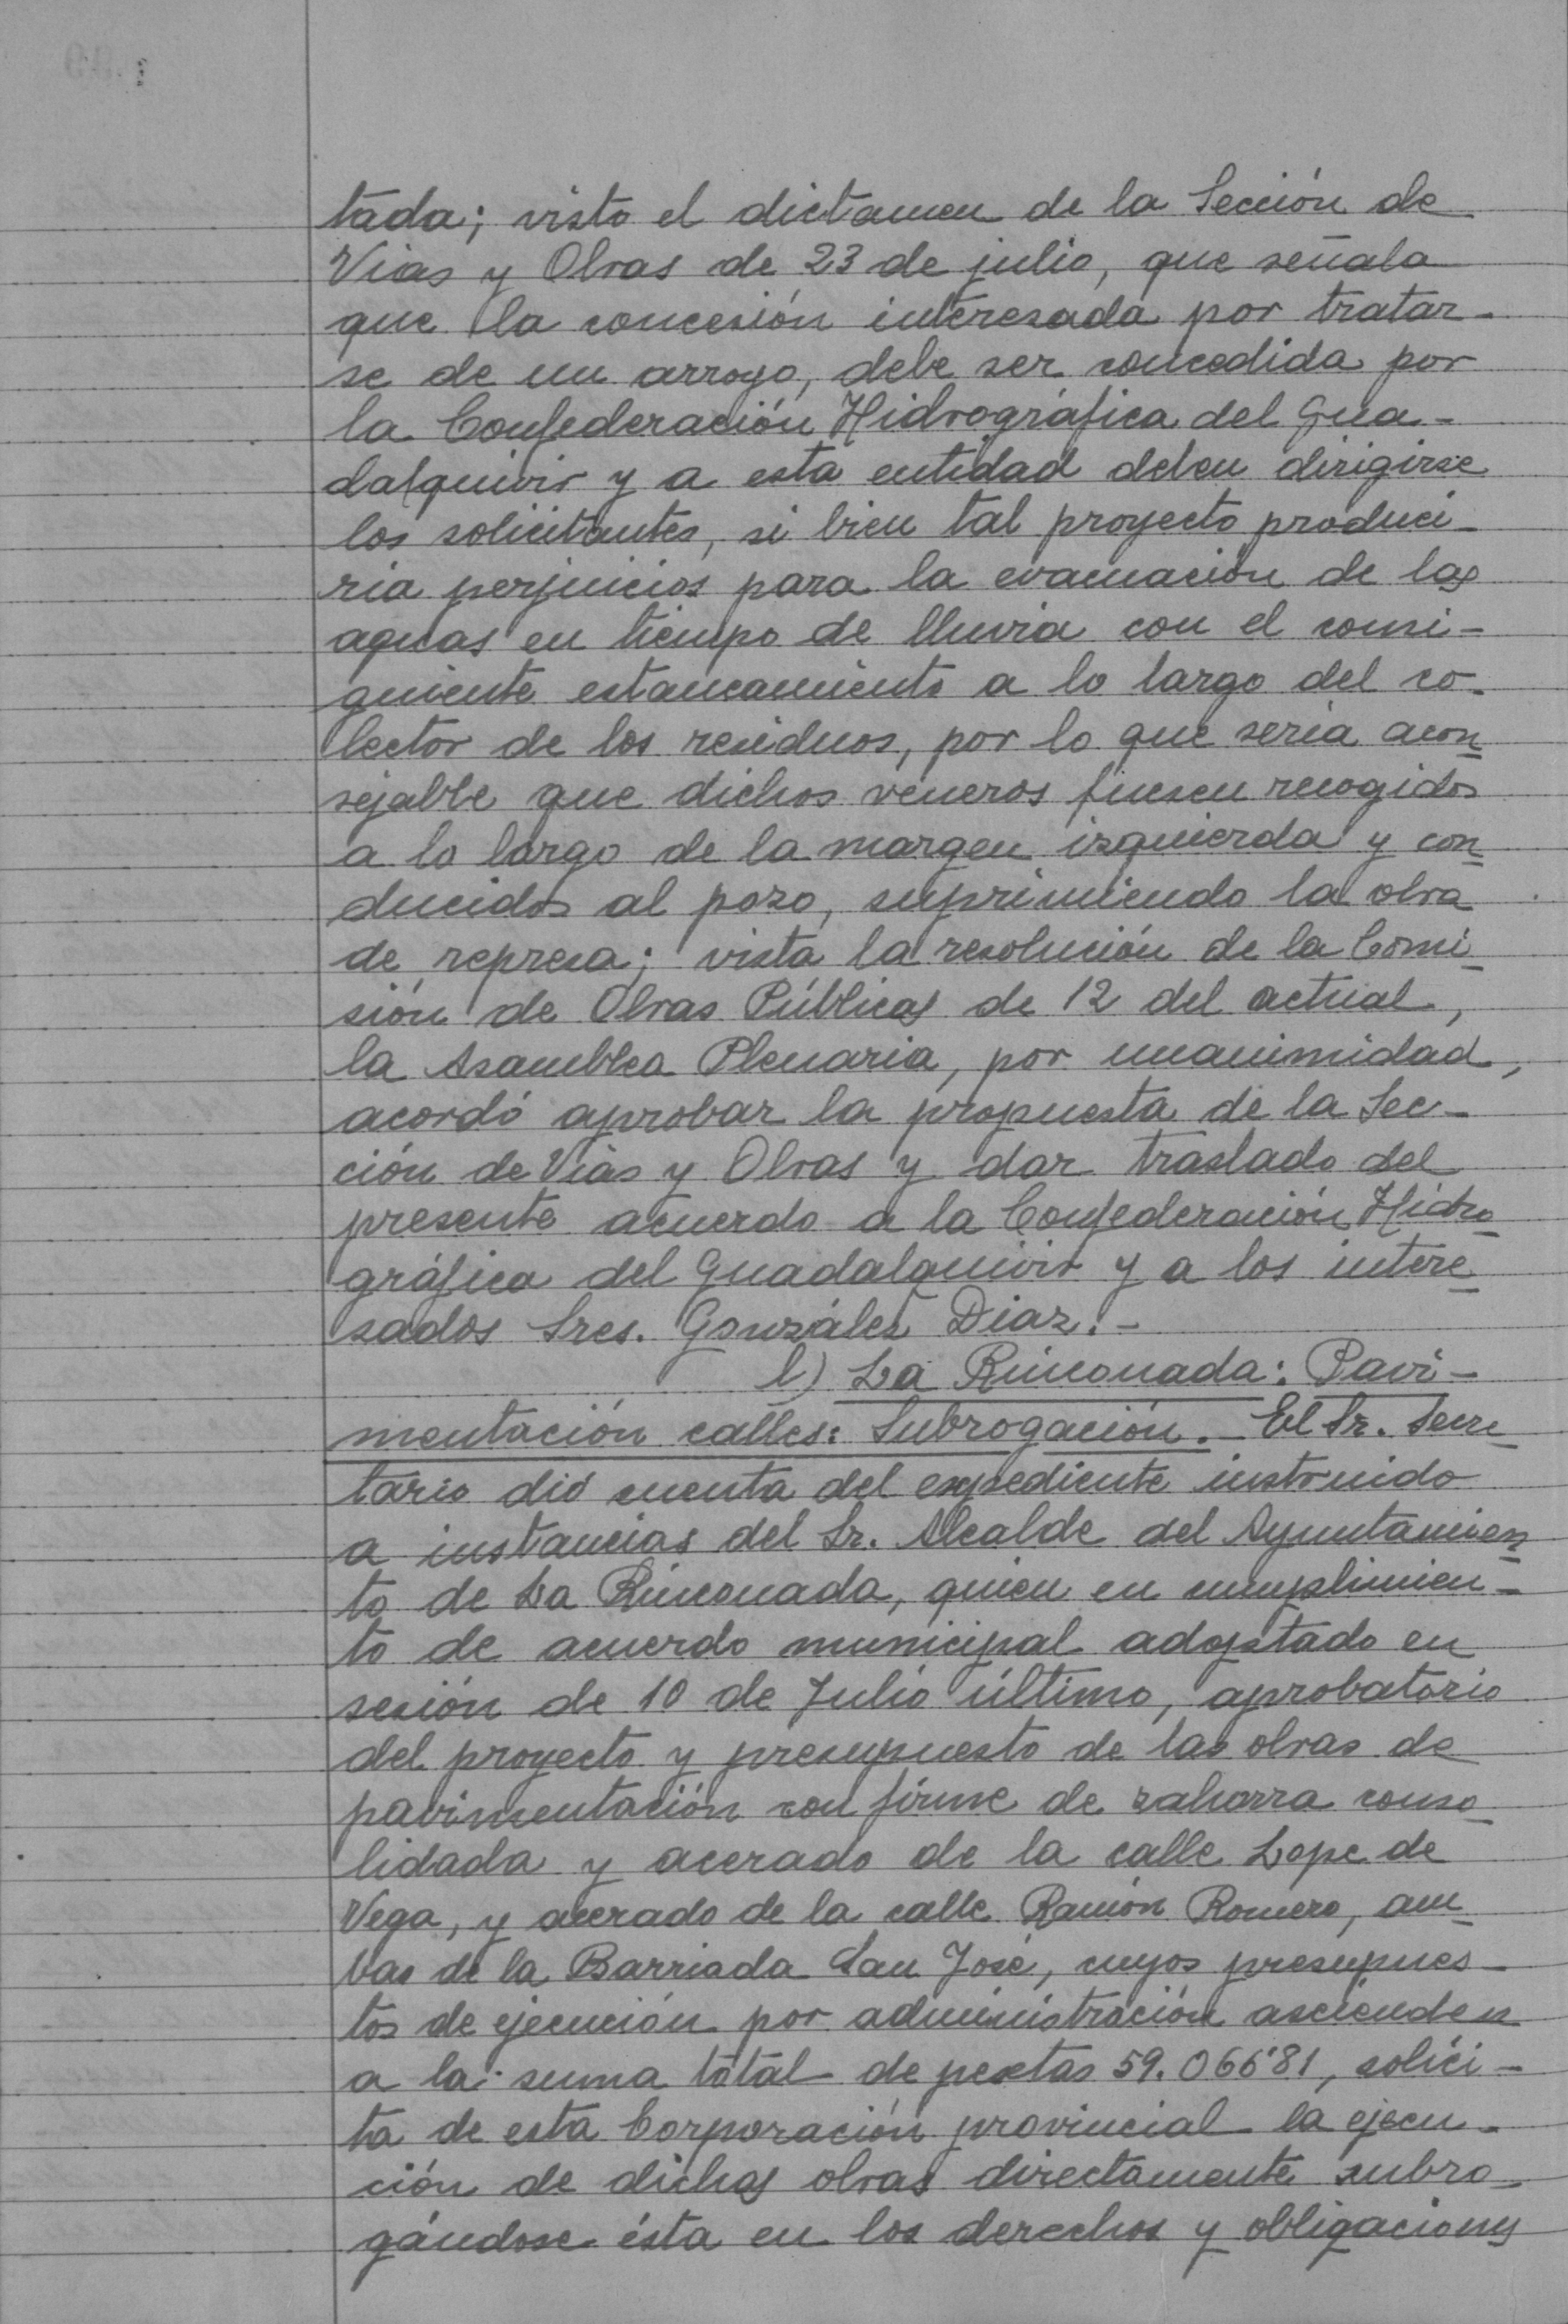 tada; visto el dictamen de la Sección de
Vias y Obras de 23 de julio, que señala
que la concesión interesada por tratar-
se de un arroyo, debe ser concedida por
la Confederación Hidrográfica del Gua-
dalquivir y a esta entidad deben dirigirse
los solicitantes, si bien tal proyecto produci-
ria perjuicios para la evacuación de las
aguas en tiempo de lluvia con el consi-
guiente estancamiento a lo largo del co-
lector de los residuos, por lo que seria acon
sejable que dichos veneros fuesen recogidos
a lo largo de la margen izquierda y con
ducidos al pozo, suprimiendo la obra
de represa; vista la resolución de la Comi
sión de Obras Públicas de 12 del actual,
la Asamblea Plenaria, por unanimidad,
acordó aprobar la propuesta de la Sec-
ción de Vias y Obras y dar traslado del
presente acuerdo a la Confederación Hidro
gráfica del Guadalquivir y a los intere
sados Sres. González Diaz.-
l) La Rinconada: Pavi-
mentación calles: Subrogación.- El Sr. Secre
tario dió cuenta del expediente instruido
a instancias del Sr. Alcalde del Ayuntamien
to de La Rinconada, quien en cumplimien-
to de acuerdo municipal adoptado en
sesión de 10 de Julio último, aprobatorio
del proyecto y presupuesto de las obras de
pavimentación con firme de zahorra conso
lidada y acerado de la calle Lope de
Vega, y acerado de la calle Ramón Romero, am
bas de la Barriada San José, cuyos presupues-
tos de ejecución por administración ascienden
a la suma total de pesetas 59.066'81, solici-
ta de esta Corporación provincial la ejecu-
ción de dichas obras directamente subro-
gándose ésta en los derechos y obligaciones